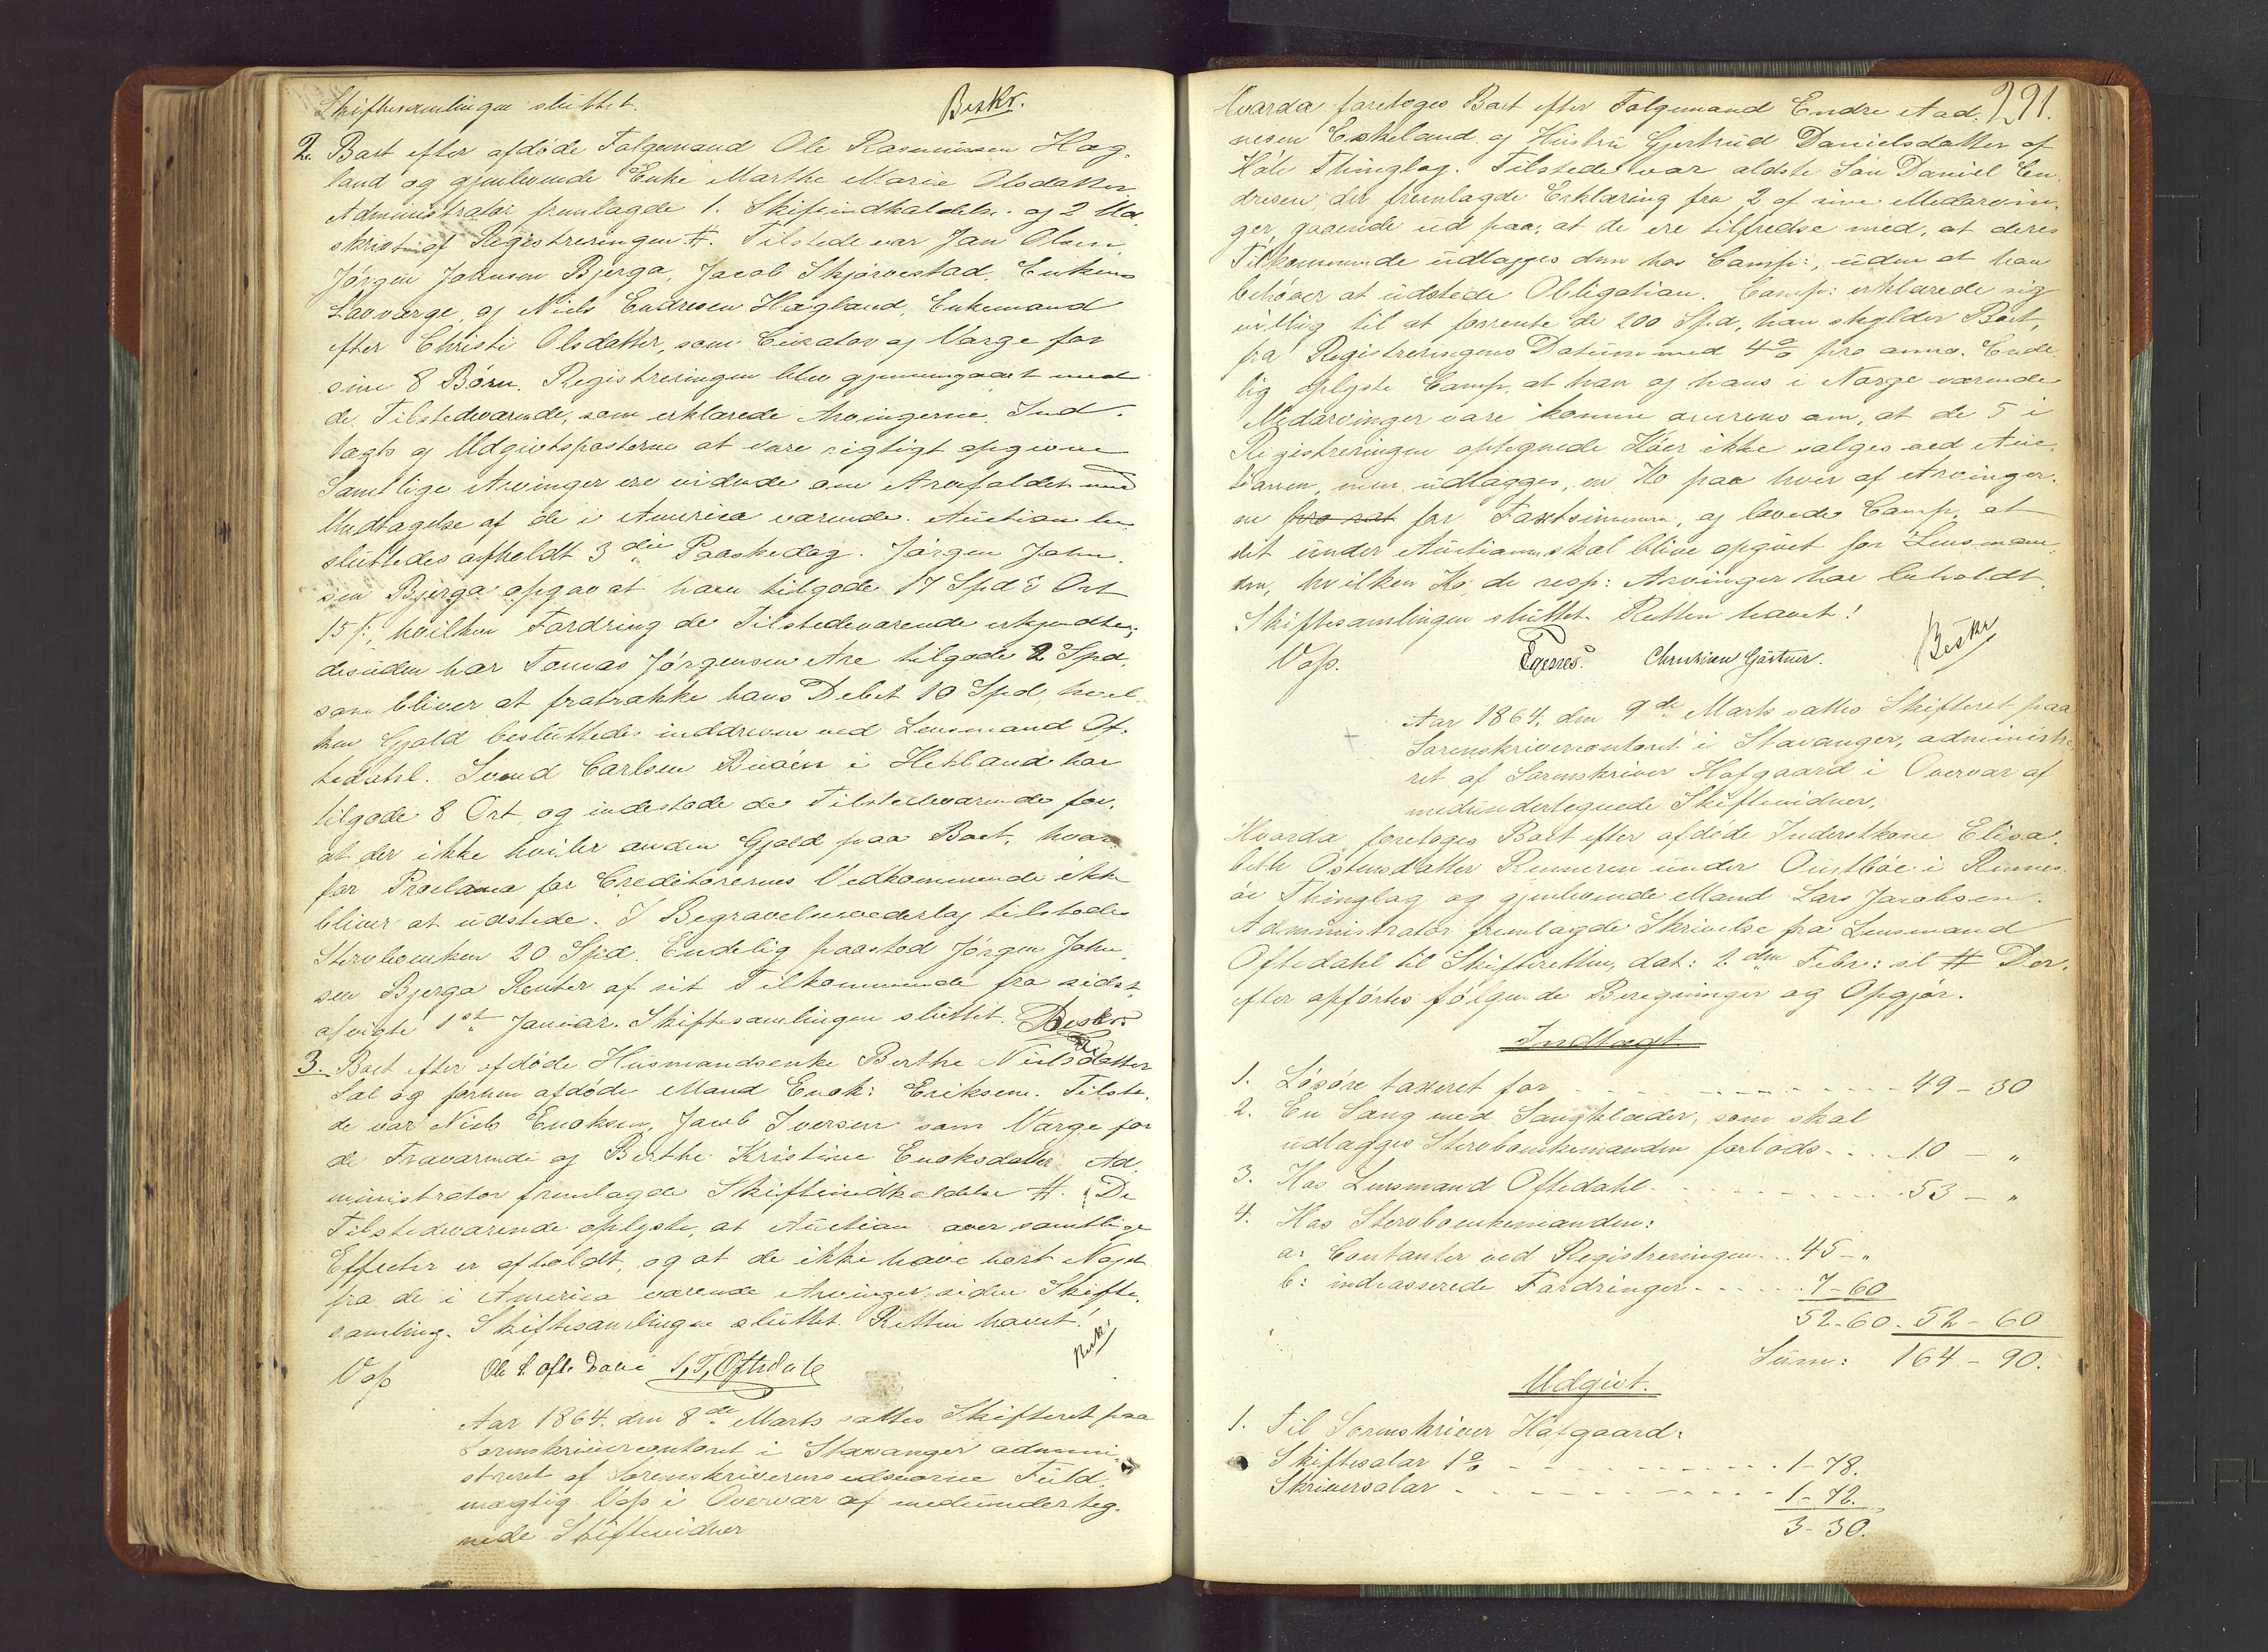 Skiftesamlingen sluttet.
Beskr.
2. Boet efter afdöde Folgemand Ole Rasmussen Hæg-
land og gjenlevende Enke Marthe Marie Olsdatter
Administrator fremlagde 1. Skifteindkaldelse og 2 Ud-
skrivt af Registreringen #. Tilstede var Jan Olsen
Jörgen Johnsen Bjerga, Jacob Skjörvestad, Enkens
Lavværge, og Niels Endresen Hægland, Enkemand
efter Christi Olsdatter, som Curator og Værge for
sine 8 Börn. Registreringen blev gjennemgaaet med
de Tilstedeværende, som erklærede Arvingerne, Ind-
tægts og Udgivtsposterne at være rigtigt opgivne
Samtlige Arvinger ere vidende om Arvefaldet med
Undtagelse af de i America værende. Auction be-
sluttedes afholdt 3die Paaskedag. Jörgen John-
sen Bjerga opgav at have tilgode 17 Spd 3 Ort
15 ſ, hvilken Fordring de Tilstedeværende erkjendte;
desuden har Tomas Jörgensen Are tilgode 2 Spd.
som bliver at fratrække hans Debet 10 Spd, hvil-
ken Gjæld besluttedes inddreven ved Lensmand Of-
tedahl. Svend Carlsen Buöen i Hetland har
tilgode 8 Ort, og indestode de Tilstedeværende for,
at der ikke hviler anden Gjæld paa Boet, hvor-
for Proclama for Creditorernes Vedkommende ikke
bliver at udstede. I Begravelsesvederlag tilstodes
Stervboenken 20 Spd. Endelig paastod Jörgen John-
sen Bjerga Renter af sit Tilkommende fra sidst-
afvigte 1ste Januar. Skiftesamlingen sluttet. Beskr.
3. Boet efter afdöde Huusmandsenke Berthe Nielsdatter
Sæl og forhen afdöde Mand Enok: Eriksen. Tilste-
de var Niels Enoksen, Jacob Iversen som Værge for
de Fraværende og Berthe Kristine Enoksdatter. Ad-
ministrator fremlagde Skifteindkaldelse #. De
Tilstedeværende oplyste, at Auction over samtlige
Effecter er afholdt, og at de ikke have hørt Noget
fra de i America værende Arvinger siden Skifte-
samling. Skiftesamlingen sluttet. Retten hævet!
Vop
S, T, Oftedahl
Beskr
Aar 1864, den 8de Marts sattes Skifteret paa
Sorenskrivercontoret i Stavanger admini-
streret af Sorenskriverens edsvorne Fuld-
mægtig Vop i Overvær af medunderteg-
nede Skiftevidner
291.
Hvorda foretoges Boet efter Folgemand Endre Aad-
nesen Eskeland og Hustru Gjertrud Danielsdatter af
Höle Thinglag. Tilstede var ældste Sön Daniel En-
dresen, der fremlagde Erklæring fra 2 af sine Medarvin-
ger, gaaende ud paa, at de ere tilfredse med, at deres
Tilkommende udlægges dem hos Comp:, uden at han
behöver at udstede Obligation. Comp: erklærede sig
villig til at forrente de 200 Spd, han skylder Boet,
fra Registreringens Datum med 4% pro anno. Ende-
lig oplyste Comp. at han og hans i Norge værende
Medarvinger vare komne overens om, at de 5 i
Registreringen optegnede Köer ikke sælges ved Auc-
tionen, men udlægges, en Ko paa hver af Arvinger-
ne pro rat for Taxtsummen, og lovede Comp. at
det under Auctionen skal blive opgivet for Lensman-
den, hvilken Ko, de resp: Arvinger har beholdt.
Skiftesamlingen sluttet. Retten hævet!
Vop.
Egenes.
Christian Gjörtner.
Beskr
Aar 1864, den 9de Marts sattes Skifteret paa
Sorenskrivercontoret i Stavanger, administre-
ret af Sorenskriver Hofgaard i Overvær af
medundertegnede Skiftevidner,
Hvorda foretoges Boet efter afdöde Inderstkone Elisa-
beth Östensdatter Renneren under Oustböe i Rennes-
öe Thinglag og gjenlevende Mand Lars Jacobsen.
Administrator fremlagde Skrivelse fra Lensmand
Oftedahl til Skifteretten, dat: 2den Febr: sl # Der-
efter opförtes fölgende Beregninger og Opgjör.
Indtægt
1. Lösöre taxeret for 49 - 30
2. En Sæng med Sængklæder, som skal
udlægges Stervboenkemanden forlods 10 - "
3. Hos Lensmand Oftedahl 53 - "
4. Hos Stervboenkemanden:
a: Contanter ved Registreringen 45 - "
b: indcasserede Fordringer 7 - 60
52 - 60. 52 - 60
Sum: 164 - 90.
Udgivt.
1. Til Sorenskriver Hofgaard:
Skiftesalær 1% 1 - 78.
Skriversalær 1 - 72.
3 - 30.